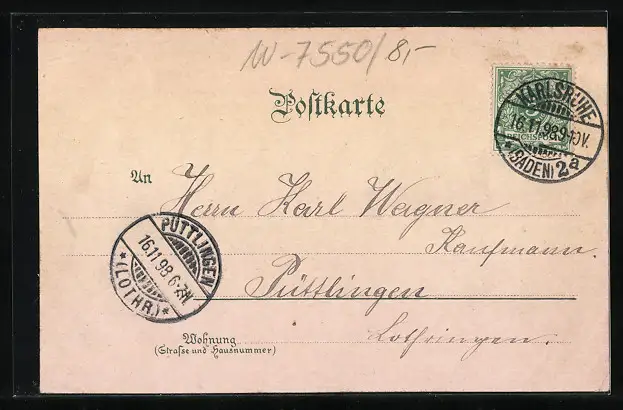 W-7550/8,-
Postkarte
REICHSPOST
KARLSRUHE
16.11.98.9-10V.
* (BADEN) 2a
An
Herrn Karl Wagner
Kaufmann.
Püttlingen
Lothringen.
PÜTTLINGEN
16.11.98 6-7N.
*(LOTHR.)*
Wohnung
(Strasse und Hausnummer)